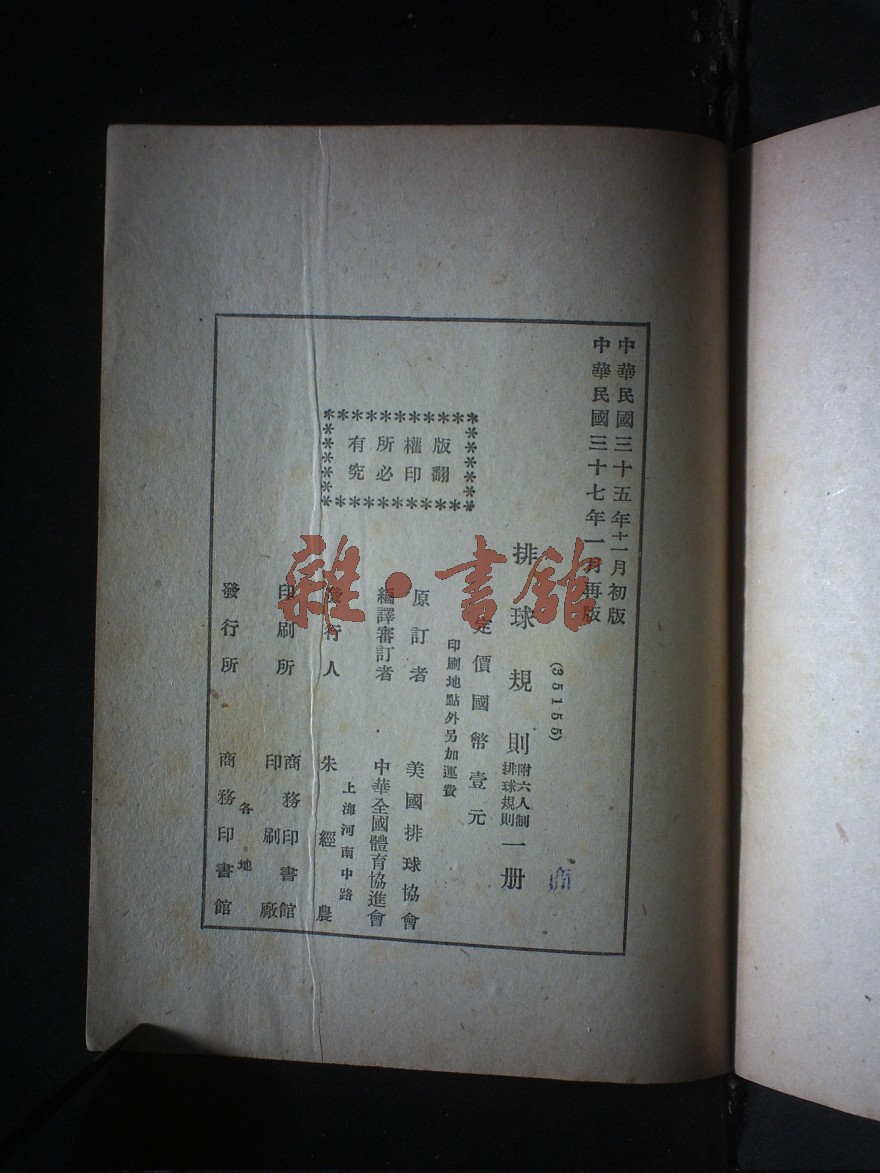 中華民國三十五年十一月初版
中華民國三十七年一月再版
(35155)
排球規則附六人制排球規則一册
定價國幣壹元
印刷地點外另加運費
版權所有
翻印必究
原訂者 美國排球協會
編譯審訂者 中華全國體育協進會
上海河南中路
發行人 朱經農
印刷所 商務印書館印刷廠
各地
發行所 商務印書館
雜·書館